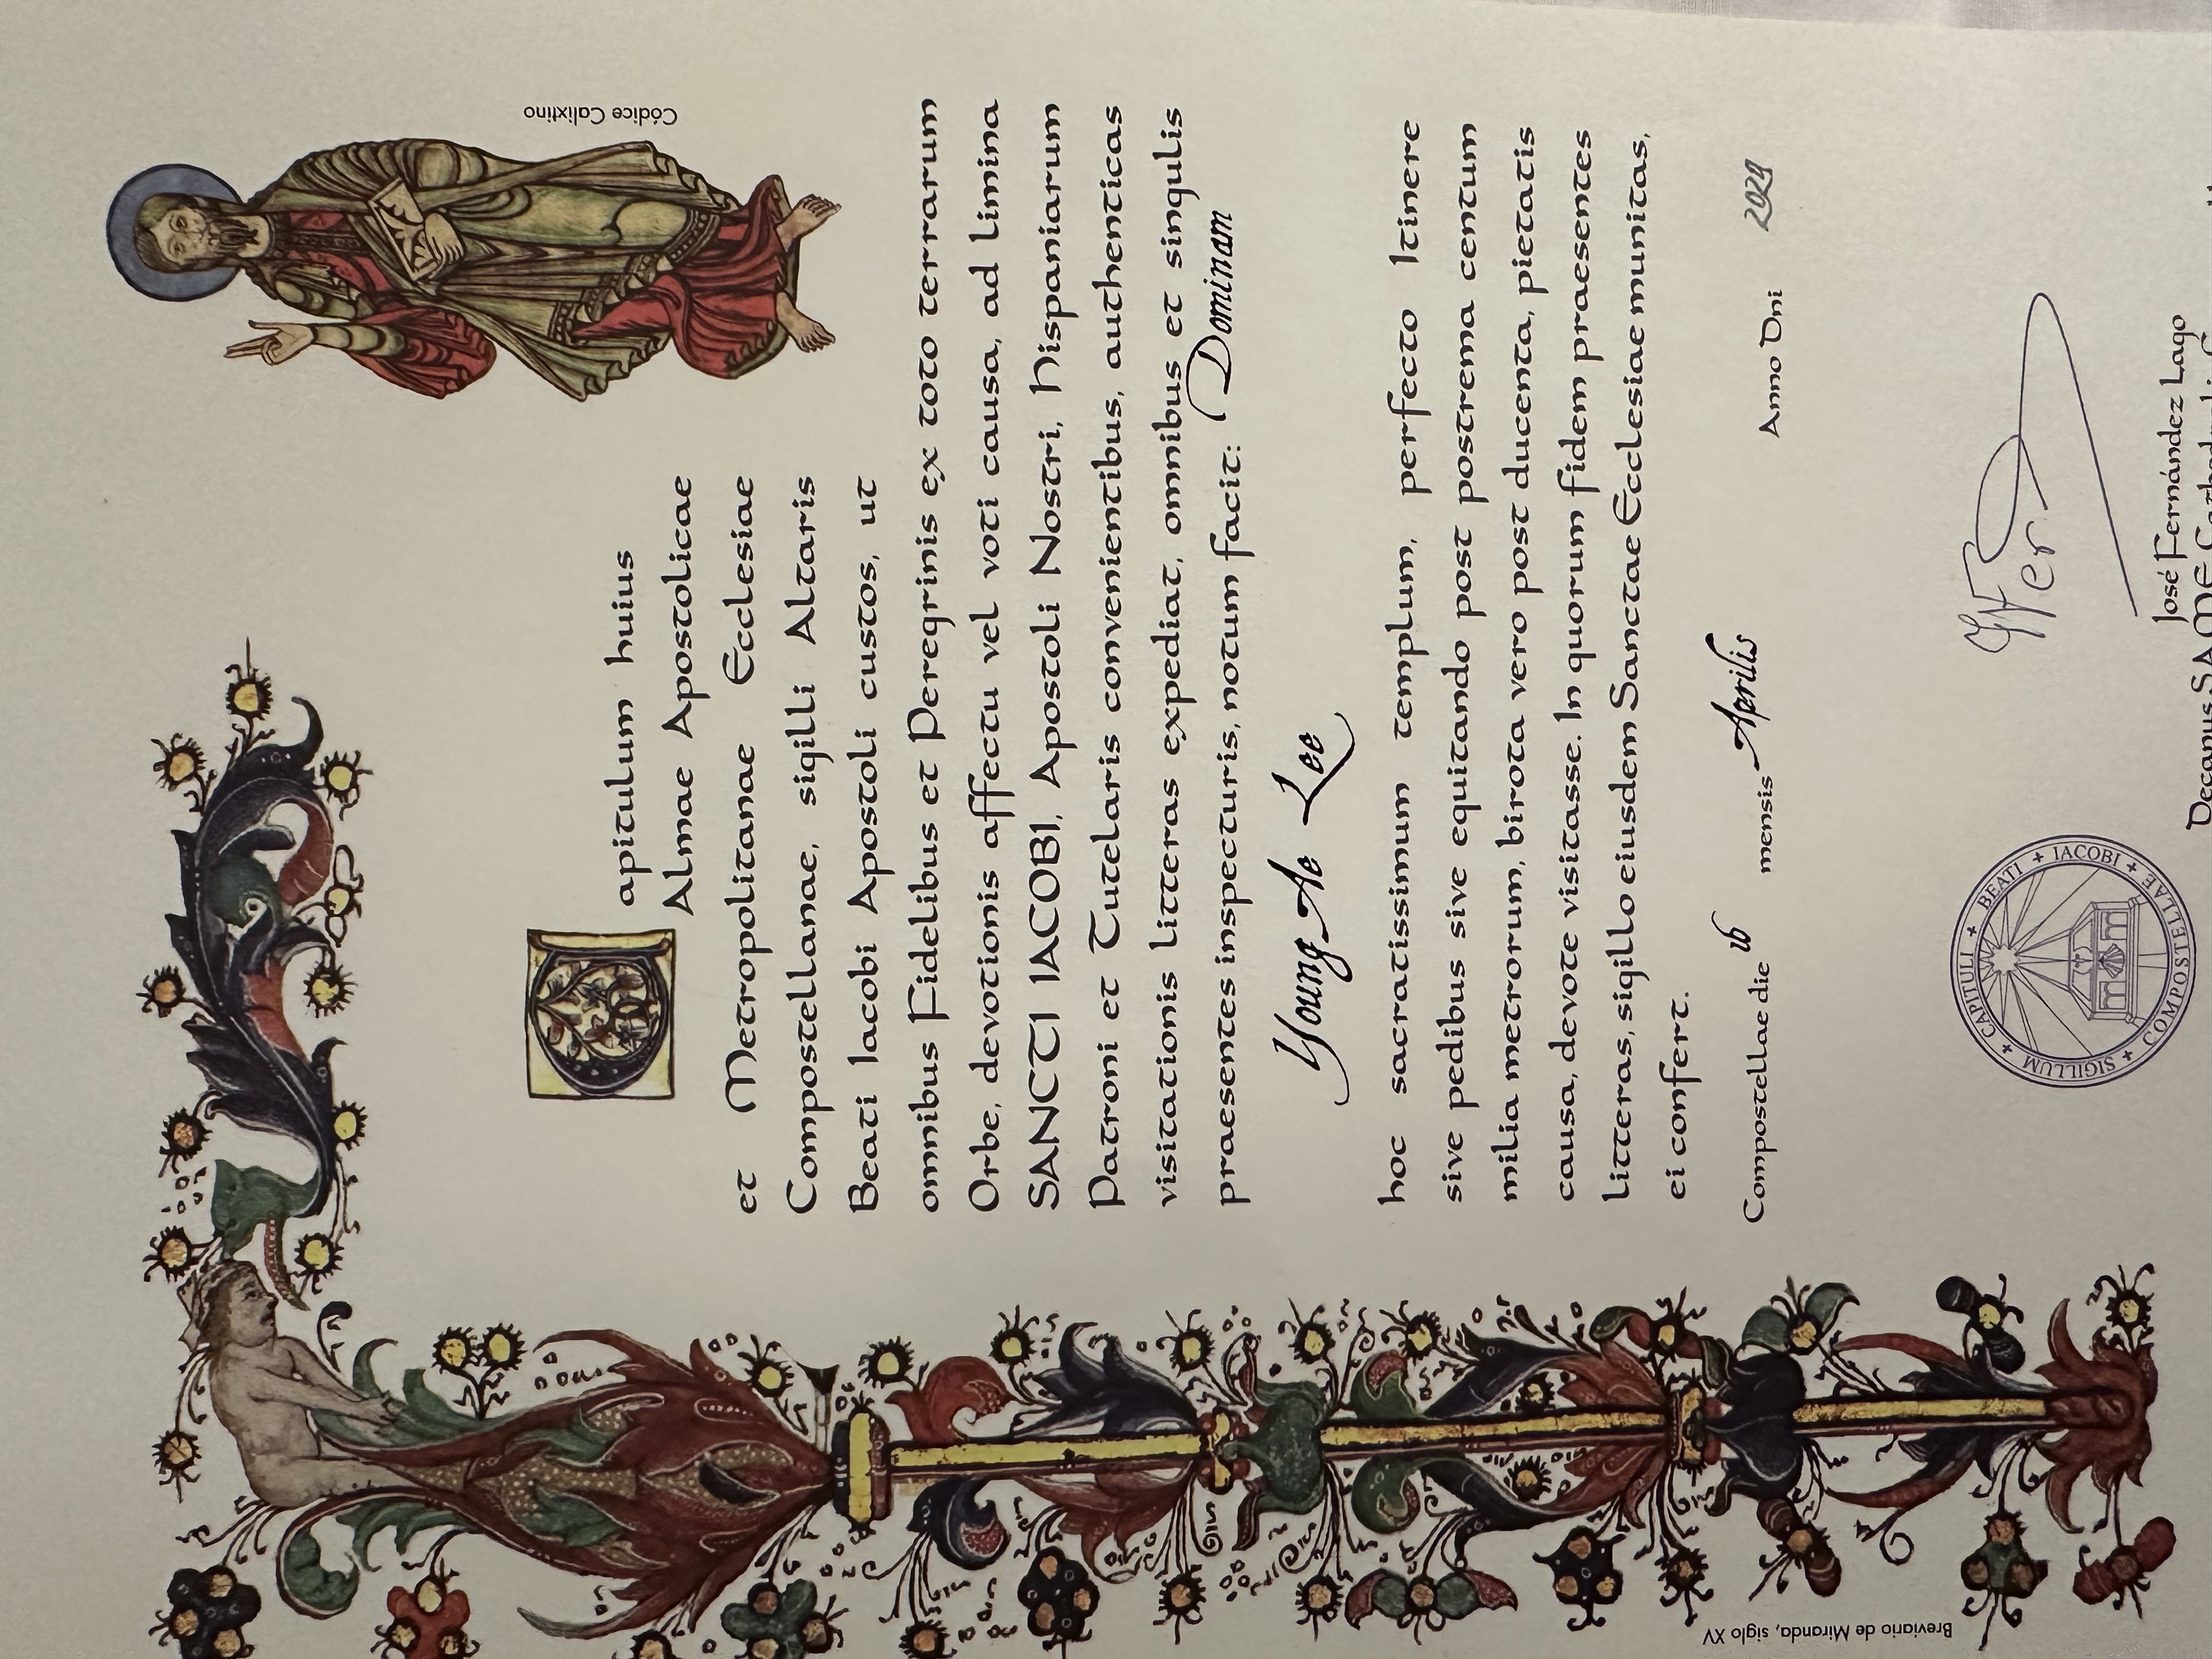 Códice Calixtino
Capitulum huius
Almae Apostolicae
et Metropolitanae Ecclesiae
Compostellanae, sigilli Altaris
Beati Iacobi Apostoli custos, ut
omnibus Fidelibus et Peregrinis ex toto terrarum
Orbe, devotionis affectu vel voti causa, ad limina
SANCTI IACOBI, Apostoli Nostri, Hispaniarum
Patroni et Tutelaris convenientibus, authenticas
visitationis litteras expediat, omnibus et singulis
praesentes inspecturis, notum facit: Dominam
Young Ae Lee
hoc sacratissimum templum, perfecto Itinere
sive pedibus sive equitando post postrema centum
milia metrorum, birota vero post ducenta, pietatis
causa, devote visitasse. In quorum fidem praesentes
litteras, sigillo eiusdem Sanctae Ecclesiae munitas,
ei confert.
Compostellae die 16 mensis Aprilis Anno Dni 2024
Breviario de Miranda, siglo XV
SIGILLUM + CAPITULI + BEATI + IACOBI + COMPOSTELLAE +
José Fernández Lago
Decanus S.A.M.E. Cathedralis